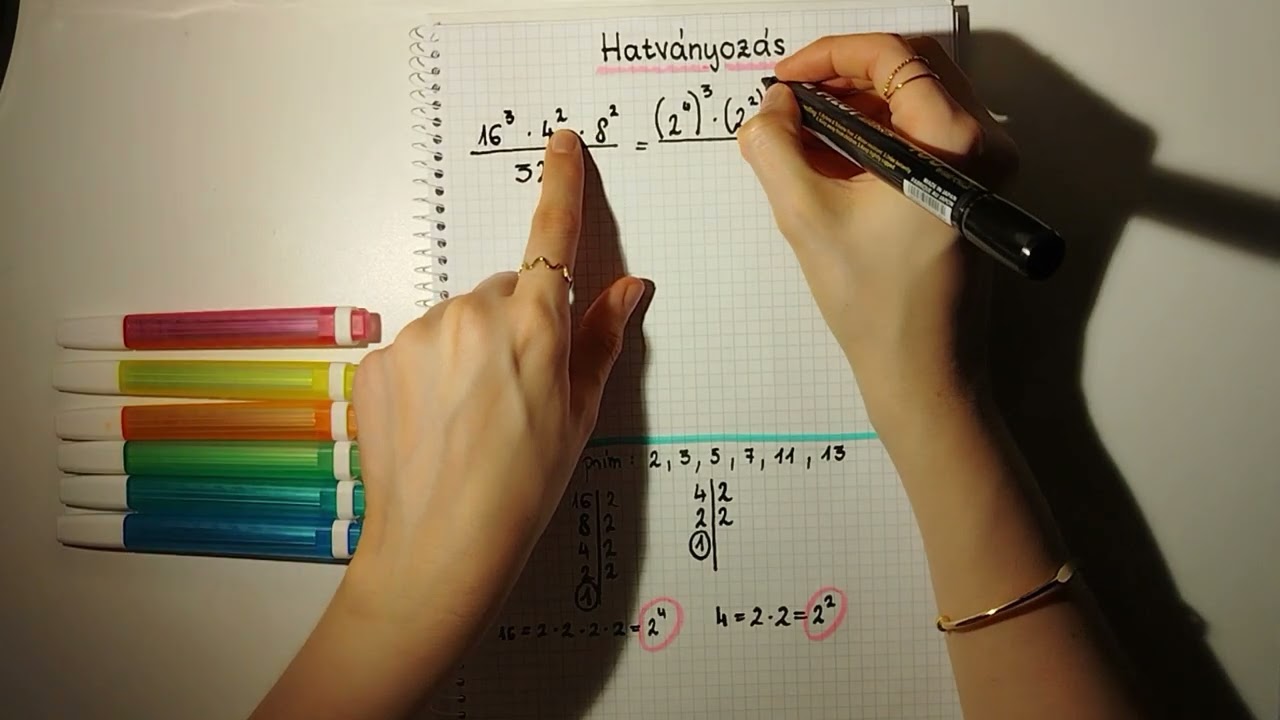 Hatványozás
16³ · 4² · 8² = (2⁴)³ · (2²)
prím : 2, 3, 5, 7, 11, 13
16 | 2 4 | 2
8 | 2 2 | 2
4 | 2 1
2 | 2
1
16 = 2 · 2 · 2 · 2 = 2⁴ 4 = 2 · 2 = 2²